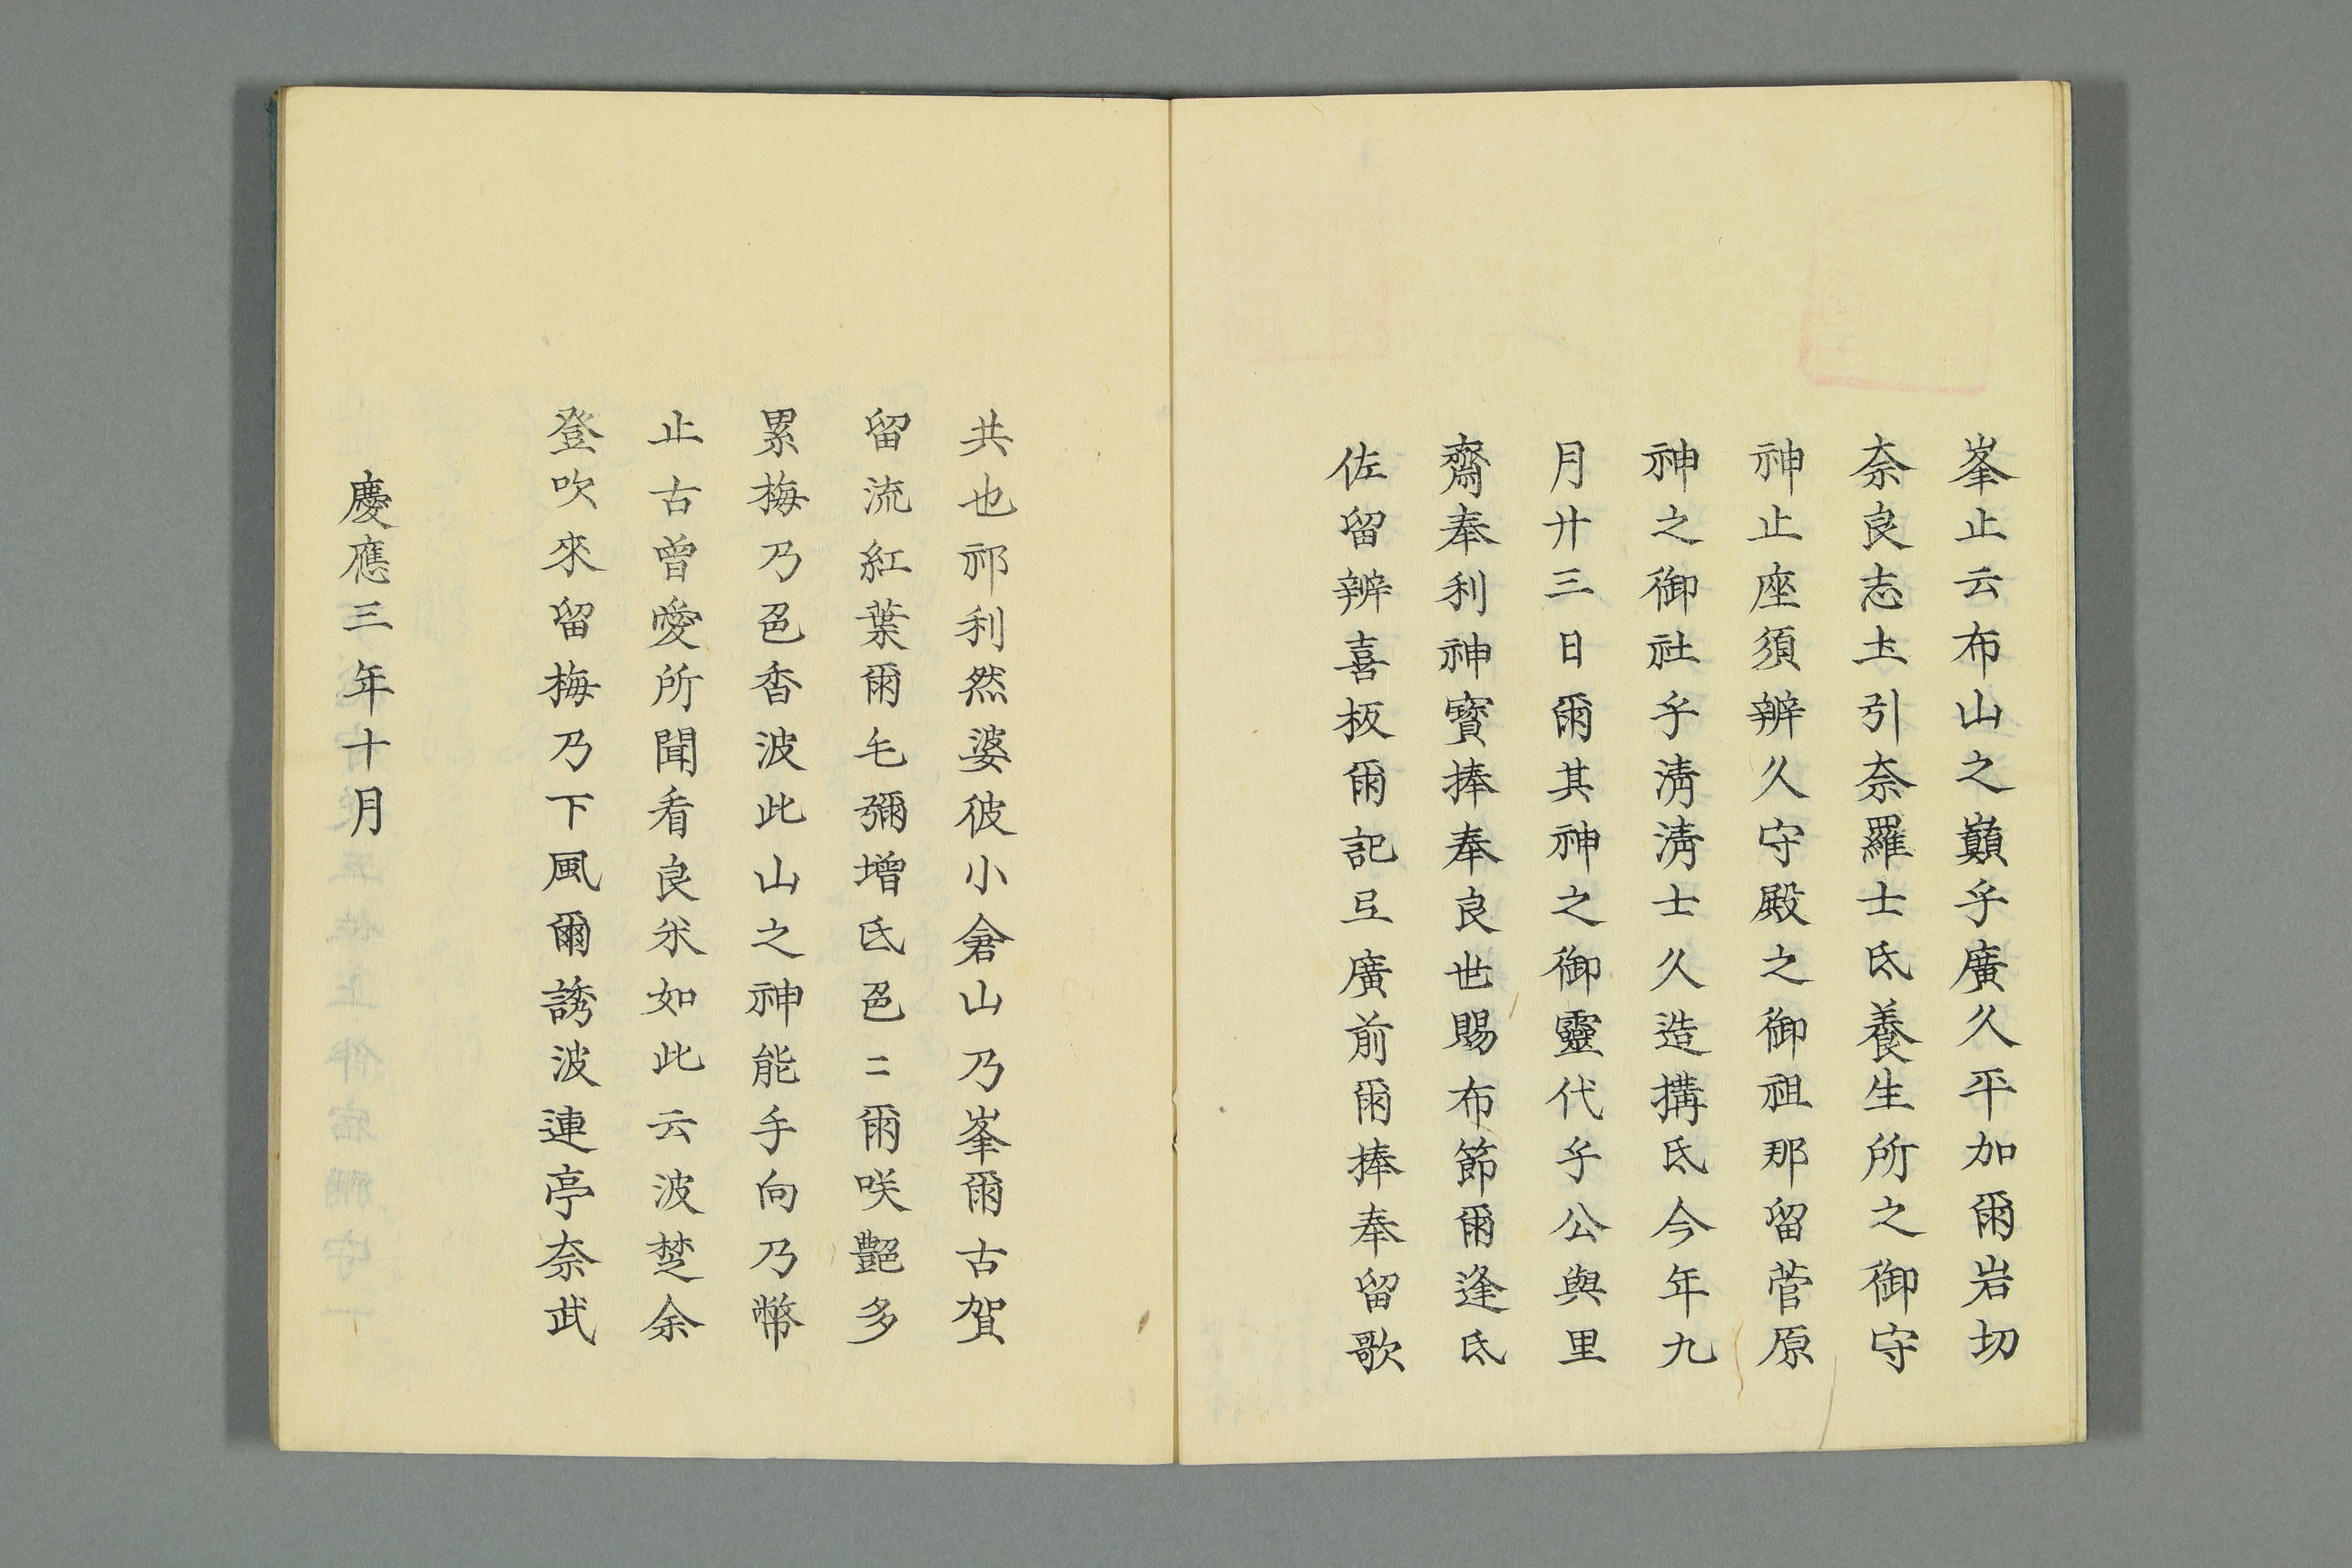 峯止云布山之巓乎廣久平加爾岩切
奈良志圡引奈羅士氐養生所之御守
神止座須辨久守殿之御祖那留菅原
神之御社乎淸淸士久造搆氐今年九
月廿三日爾其神之御靈代乎公與里
齋奉利神寳捧奉良世賜布節爾逢氐
佐留辨喜板爾記弖廣前爾捧奉留歌
共也祁利然婆彼小倉山乃峯爾古賀
留流紅葉爾毛彌增氐色二爾咲艷多
累梅乃色香波此山之神能手向乃幣
止古曾愛所聞看良米如此云波埜余
登吹來留梅乃下風爾誘波連亭奈武
慶應三年十月